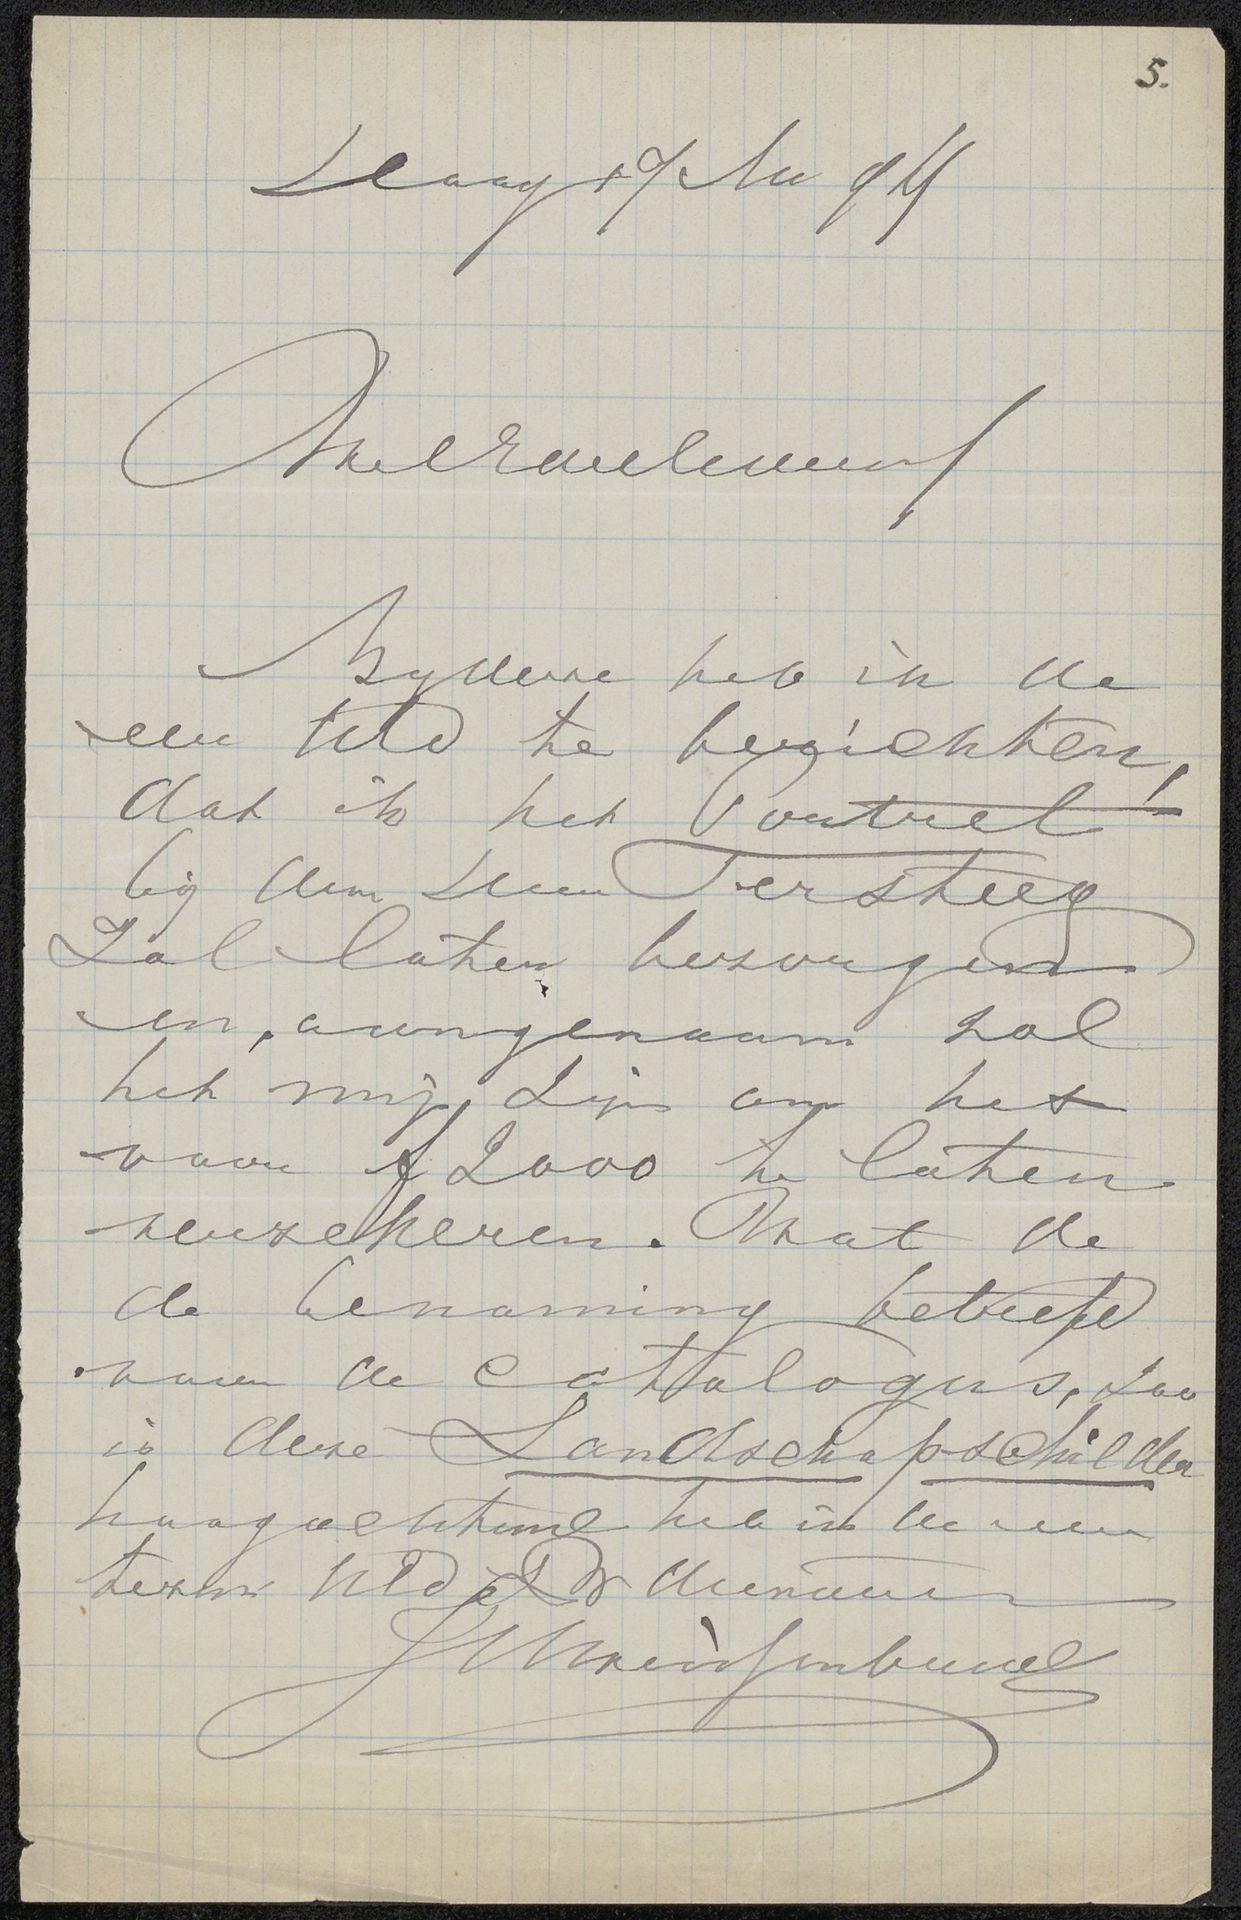 5.
Haag 17 Nov 94
WelEdele Heer
Bij deze heb ik de
eer UEd te berichten,
dat ik het Portret
bij den Heer Tersteeg
Zal laten bezorgen
en, aangenaam zal
het mij, zijn om het
voor f 2000 te laten
verzekeren. Wat de
de benaming betreft
voor de Cattalogus, zoo
is deze Landschapschilder
hoogachtend heb ik de eer
te zijn UEd Dr dienaar
J H Weissenbruch